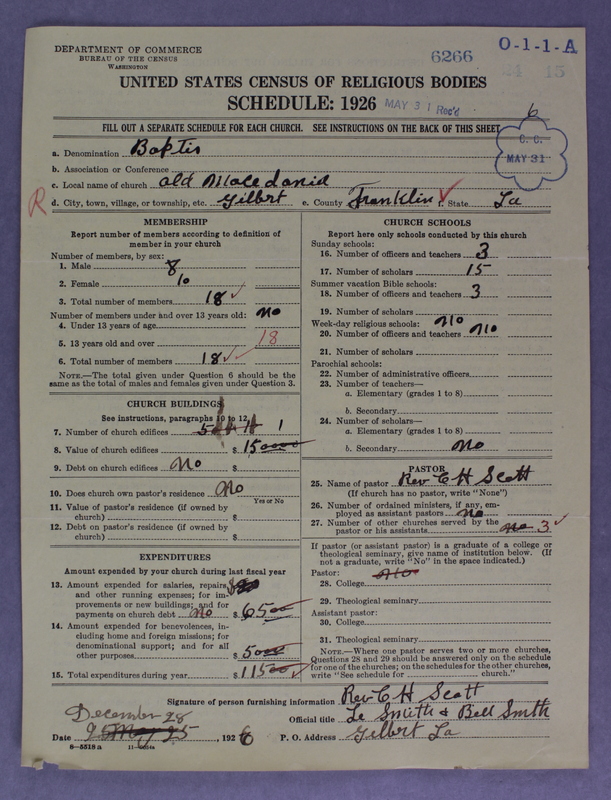 DEPARTMENT OF COMMERCE
BUREAU OF THE CENSUS
WASHINGTON
6266
O-1-1-A
24 15
UNITED STATES CENSUS OF RELIGIOUS BODIES
SCHEDULE: 1926
MAY 31 Rec'd
6
FILL OUT A SEPARATE SCHEDULE FOR EACH CHURCH. SEE INSTRUCTIONS ON THE BACK OF THIS SHEET
C. C.
MAY 31
a. Denomination Baptis
b. Association or Conference
c. Local name of church Old Macedonia
R
d. City, town, village, or township, etc. Gilbert e. County Franklin f. State La
MEMBERSHIP
Report number of members according to definition of
member in your church
Number of members, by sex:
1. Male 8
2. Female 10
3. Total number of members 18
Number of members under and over 13 years old: no
4. Under 13 years of age
5. 13 years old and over 18
6. Total number of members 18
NOTE.—The total given under Question 6 should be the
same as the total of males and females given under Question 3.
CHURCH BUILDINGS
See instructions, paragraphs 10 to 12
7. Number of church edifices 1
8. Value of church edifices $ 15000
9. Debt on church edifices No $
10. Does church own pastor's residence No
Yes or No
11. Value of pastor's residence (if owned by
church) $
12. Debt on pastor's residence (if owned by
church) $
EXPENDITURES
Amount expended by your church during last fiscal year
13. Amount expended for salaries, repairs,
and other running expenses; for im-
provements or new buildings; and for
payments on church debt no $ 6500
14. Amount expended for benevolences, in-
cluding home and foreign missions; for
denominational support; and for all
other purposes $ 5000
15. Total expenditures during year $ 11500
CHURCH SCHOOLS
Report here only schools conducted by this church
Sunday schools:
16. Number of officers and teachers 3
17. Number of scholars 15
Summer vacation Bible schools:
18. Number of officers and teachers 3
19. Number of scholars
Week-day religious schools: no
20. Number of officers and teachers no
21. Number of scholars
Parochial schools:
22. Number of administrative officers
23. Number of teachers—
a. Elementary (grades 1 to 8)
b. Secondary
24. Number of scholars—
a. Elementary (grades 1 to 8)
b. Secondary No
PASTOR
25. Name of pastor Rev C H Scott
(If church has no pastor, write "None")
26. Number of ordained ministers, if any, em-
ployed as assistant pastors no
27. Number of other churches served by the
pastor or his assistants no 3
If pastor (or assistant pastor) is a graduate of a college or
theological seminary, give name of institution below. (If
not a graduate, write "No" in the space indicated.)
Pastor: No
28. College
29. Theological seminary
Assistant pastor:
30. College
31. Theological seminary
NOTE.—Where one pastor serves two or more churches,
Questions 28 and 29 should be answered only on the schedule
for one of the churches; on the schedules for the other churches,
write "See schedule for church."
Signature of person furnishing information Rev C H Scott
Official title Le Smith & Bell Smith
December 28
Date 25 May 25, 1926 P. O. Address Gilbert La
6—5518 a